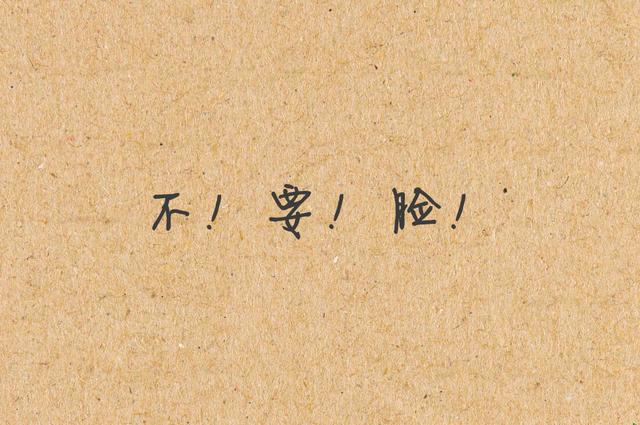 不！要！脸！